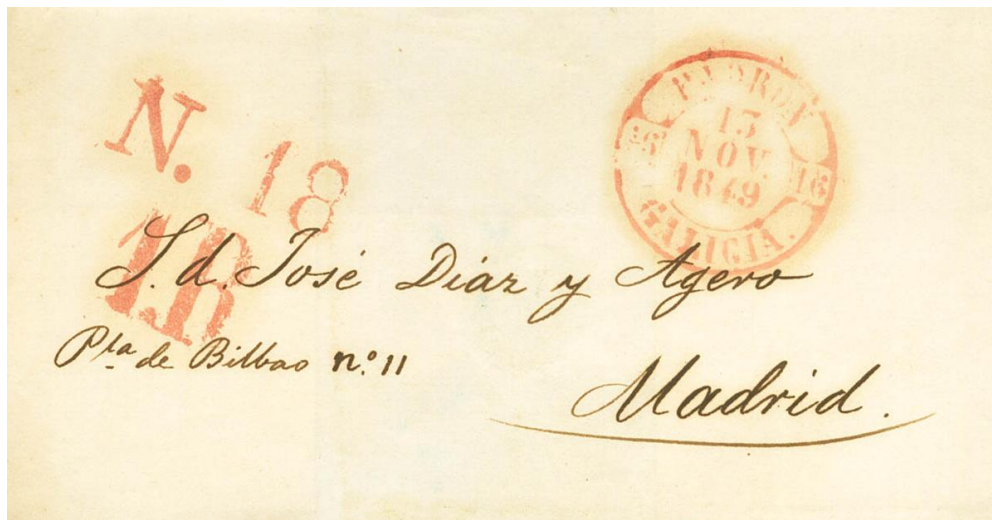 N. 18
1R
PADRON
16
13
NOV.
1849
16
GALICIA.
S. d. José Díaz y Agero
Pta de Bilbao nº. 11
Madrid.